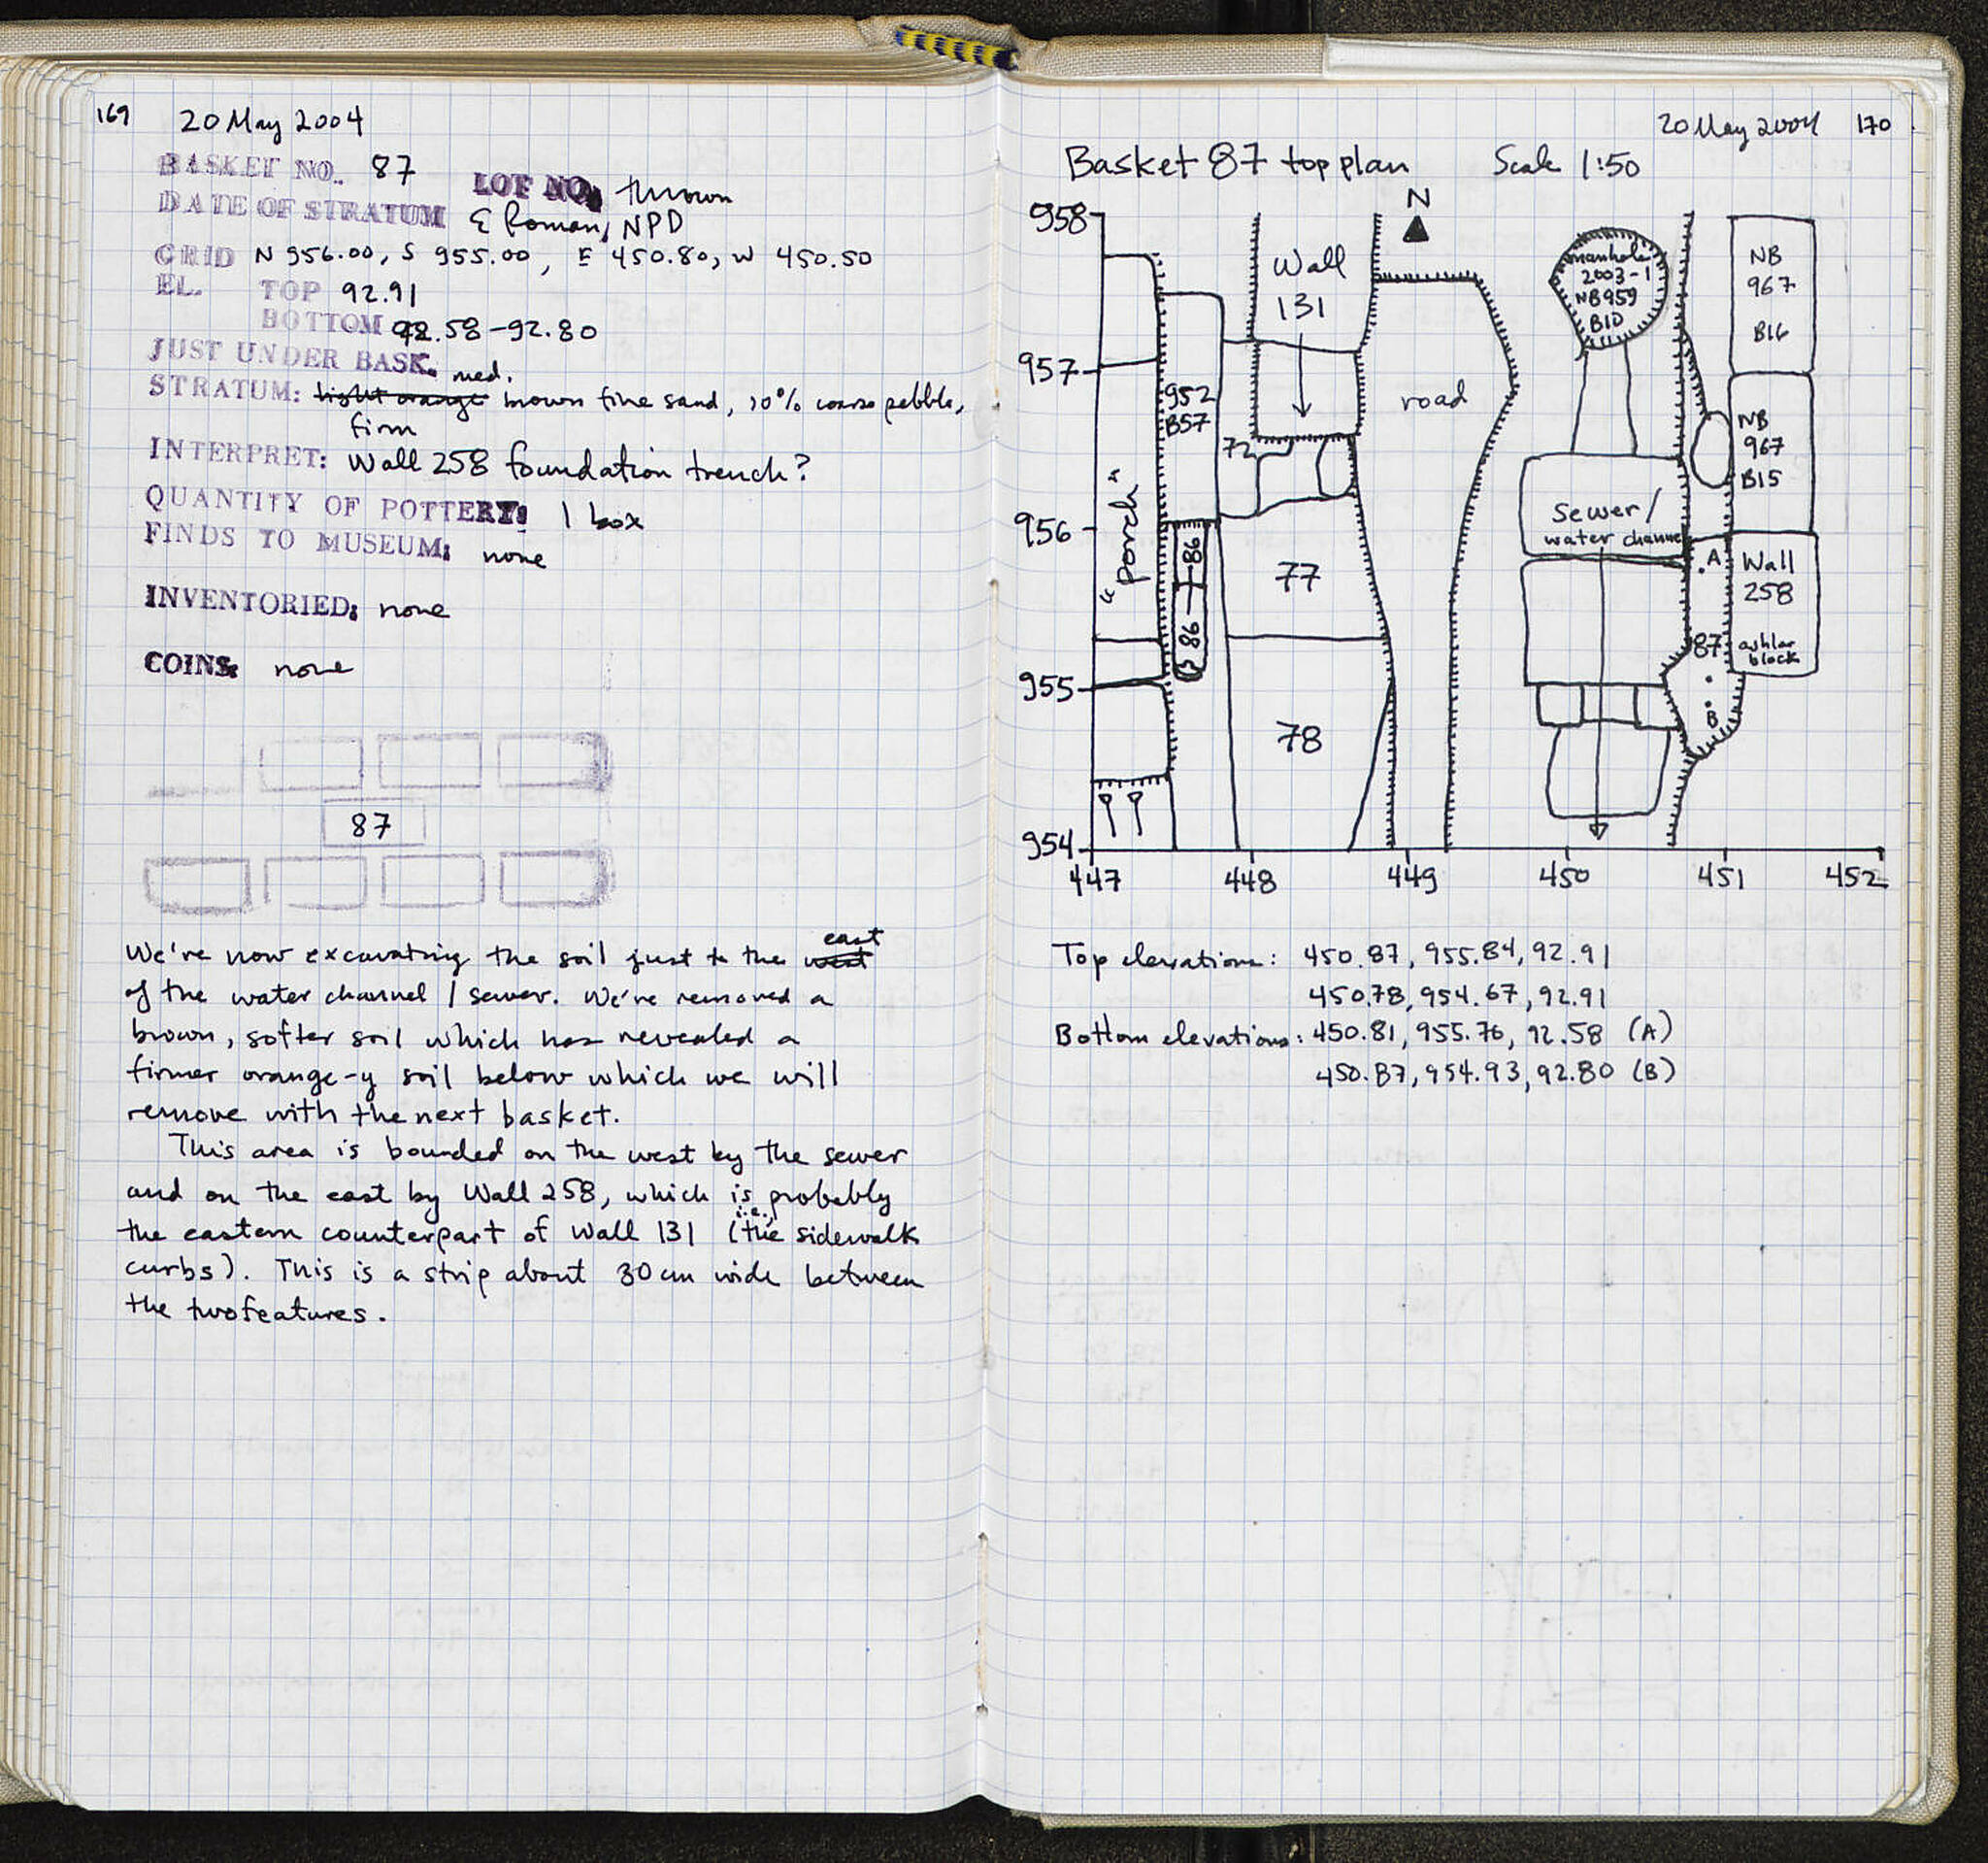 169 20 May 2004
BASKET NO. 87 LOT NO. thrown
DATE OF STRATUM E Roman, NPD
GRID N 956.00, S 955.00, E 450.80, W 450.50
EL. TOP 92.91
BOTTOM 92.58-92.80
JUST UNDER BASK.
STRATUM: light orange med. brown fine sand, 10% coarse pebble,
firm
INTERPRET: Wall 258 foundation trench?
QUANTITY OF POTTERY: 1 box
FINDS TO MUSEUM: none
INVENTORIED: none
COINS: none
87
We're now excavating the soil just to the west east
of the water channel / sewer. We've removed a
brown, softer soil which has revealed a
firmer orange-y soil below which we will
remove with the next basket.
This area is bounded on the west by the sewer
and on the east by Wall 258, which is probably
the eastern counterpart of Wall 131 (i.e., the sidewalk
curbs). This is a strip about 30 cm wide between
the two features.
20 May 2004 170
Basket 87 top plan Scale 1:50
N
958
957
956
955
954
447 448 449 450 451 452
"Porch"
952
B57
86
86
Wall
131
72
77
78
road
manhole
2003-1
NB959
B10
Sewer/
water channel
NB
967
B16
NB
967
B15
A
Wall
258
ashlar
block
87
B
Top elevations: 450.87, 955.84, 92.91
450.78, 954.67, 92.91
Bottom elevations: 450.81, 955.76, 92.58 (A)
450.87, 954.93, 92.80 (B)